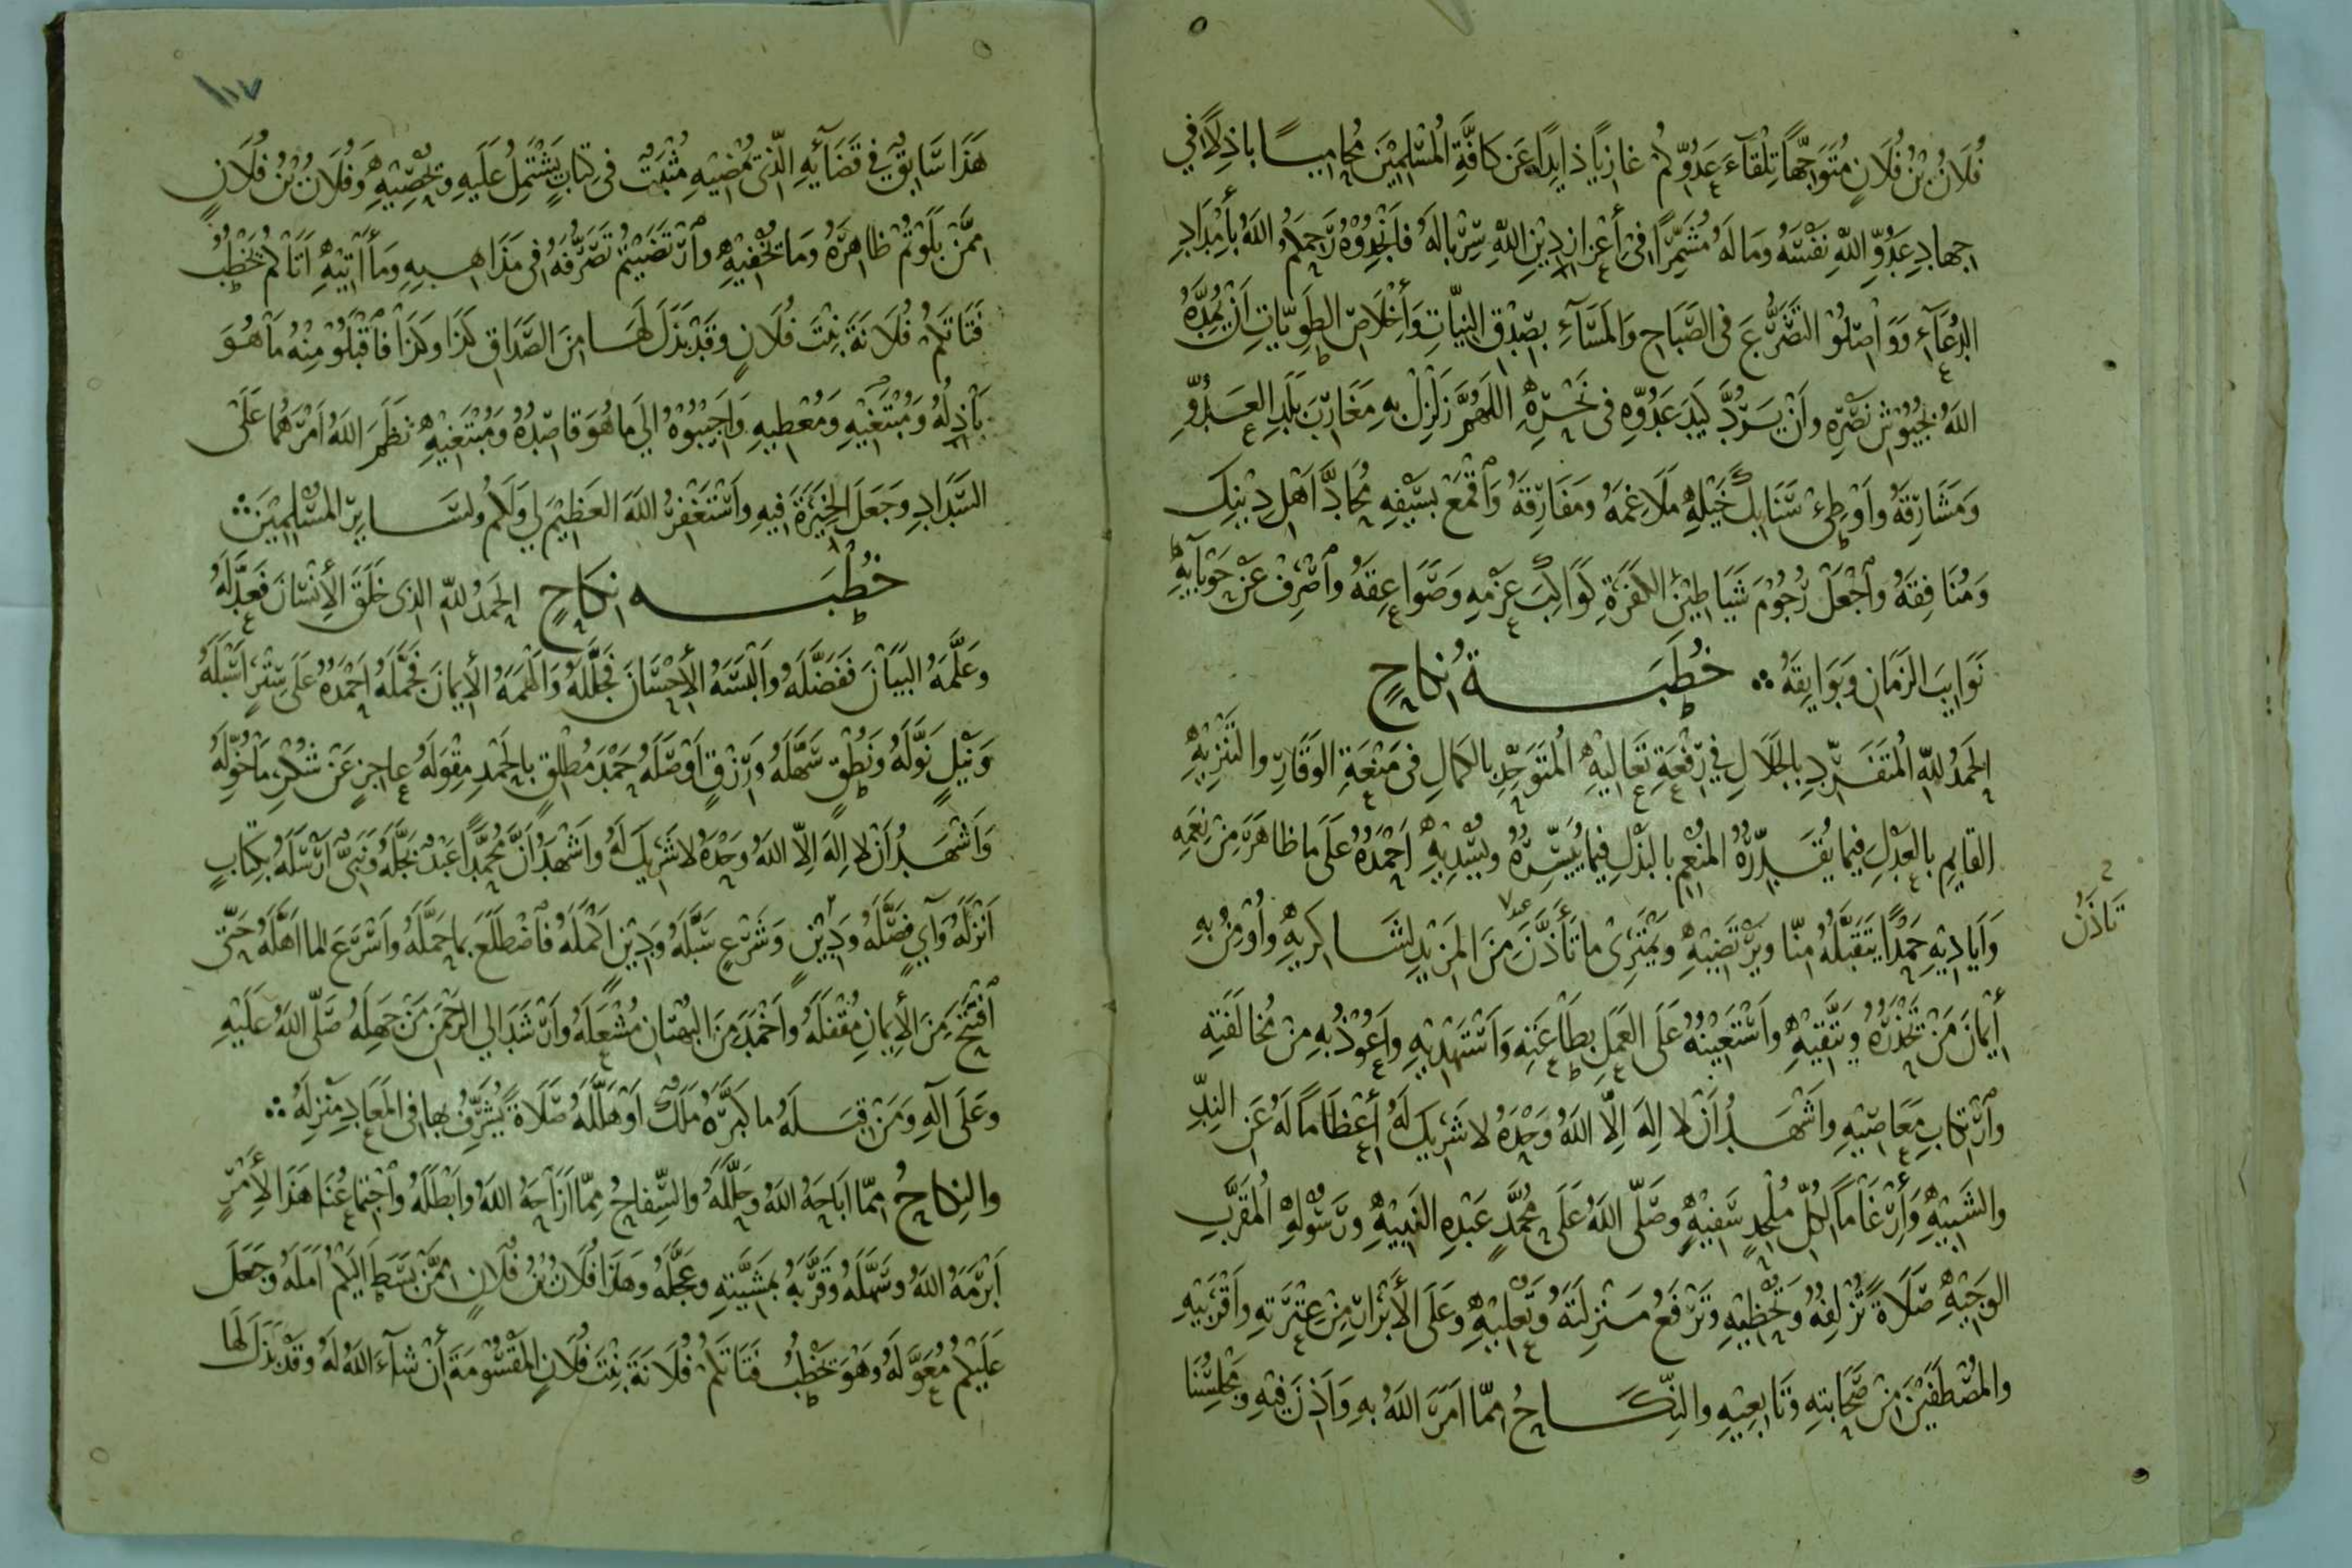 فُلَانُ بْنُ فُلَانٍ مُتَوَجِّهًا تِلْقَاءَ عَدُوِّكُمْ غازيًا ذايدًا عَنْ كَافَّةِ الْمُسْلِمِيْنَ مُحامِيًا باذِلًا في
جِهادِ عَدُوِّ اللّٰهِ نَفْسَهُ ومَالَهُ مُشَمِّرًا فى أِعْزازِ دِيْنِ اللّٰهِ سِرْبالَهُ فَأنْجِدُوْهُ رَحِمَكُمُ اللّٰهُ بأِمْدَادِ
الدُعَآءِ وَوَاصِلُوْا التَضَرُّعَ فى الصَّبَاحِ وَالمَسَآءِ بِصِدْقِ النِيَّاتِ وَأِخْلَاصِ الطَوِيَّاتِ اَنْ يُمِدَّهُ
اللّٰهُ بِجُيُوْشِ نَصْرِهِ واَنْ يَرُدَّ كَيْدَ عَدُوِّهِ فى نَحْرِهِ اللّٰهُمَّ زَلْزِلْ بهِ مَغَارِبَ بَلَدِ العَدُوِّ
وَمَشَارِقَهُ وأَوْطِئْ سَنَابِكَ خَيْلِهِ مَلَاغِمَهُ ومَفَارِقَهُ وَاقْمَعْ بسَيْفِهِ مُحَادَّ اَهْلِ دِيْنِكَ
وَمُنَافِقَهُ واجْعَلْ رُجُوْمَ شَيَاطِيْنِ الكَفَرَةِ كَوَاكِبَ عَزْمِهِ وَصَوَاعِقَهُ واصْرِفْ عَنْ حَوْبَآيهِ
نَوَايبَ الزَمَانِ وَبَوَايقَهُ ∴ خُطْبَـــة نِكاحٍ
الحَمْدُ لِلّٰهِ المُتَفَرِّدِ بِالجَلَالِ فِي رِفْعَةِ تَعَالِيْهِ المُتَوَحِّدِ بالكَمالِ فى مَنْعَةِ الوَقَارِ والتَنْزِيْهِ
القايمِ بالعَدْلِ فِيْما يُقَدِّرُهُ المُنْعِمِ بالبَذْلِ فِيْما يُيَسِّرُهُ ويُسْدِيْهِ اَحْمَدُهُ عَلَى ما ظَاهَرَ مِنْ نِعَمِهِ
وَاَيادِيْهِ حَمْدًا يَتَقَبَّلُهُ مِنّا ويَرْتَضِيْهِ ويَمْتَرِى ما تَأَذَّنَ مِنَ المَزِيْدِ لِشَاكِرِيهِ وأُوْمِنُ بهِ
تَاَذَّنَ
أِيْمَانَ مَنْ يَحْذَرُهُ ويَتَّقِيْهِ واَسْتَعِيْنُهُ عَلَى العَمَلِ بِطَاعَتِهِ وَاَسْتَهْدِيْهِ واَعُوْذُ بِهِ مِنْ مُخَالَفَتِهِ
وارْتِكابِ مَعَاصِيْهِ واَشْهَدُ اَنْ لا اِلهَ اِلَّا اللّٰهُ وَحْدَهُ لا شَرِيْكَ لَهُ أِعْظَامًا لَهُ عَنِ النِدِّ
والشَبِيْهِ وَأِرْغَامًا لِكُلِّ مُلْحِدٍ سَفِيْهٍ وصَلَّى اللّٰهُ عَلَى مُحَمَّدٍ عَبْدِهِ النَبِيْهِ ورَسُوْلِهِ المُقَرَّبِ
الوَجِيْهِ صَلَاةً تُزْلِفُهُ وتُحْظِيْهِ وتَرْفَعُ مَنْزِلَتَهُ وتُعْلِيْهِ وعَلَى الأَبْرَارِ مِنْ عِتْرَتِهِ واَقْرَبِيْهِ
والمُصْطَفَيْنَ مِنْ صَحَابَتِهِ وتَابِعِيْهِ والنِّكَاحُ مِمَّا اَمَرَ اللّٰهُ بهِ وَاَذِنَ فِيْهِ ومَجْلِسُنَا
١٠٧
هَذَا سَابِقٌ فِي قَضَآئِهِ الَّذِى يُمْضِيْهِ مُثْبَتٌ فى كِتَابٍ يَشْتَمِلُ عَلَيهِ ويُحْصِيْهِ وَفُلَانُ بْنُ فُلَانٍ
مِمَّنْ بَلَوْتُمْ ظاهِرَهُ ومَا تُخْفِيْهِ وارْتَضَيْتُمْ تَصَرُّفَهُ فى مَذَاهِبِهِ ومَا أَتِيْهِ اَتَاكُمْ يَخْطُبُ
فَتَاتَكُمْ فُلَانَةَ بِنْتَ فُلَانٍ وقَدْ بَذَلَ لَهَا مِنَ الصَّدَاقِ كَذَا وكَذَا فاقْبَلُوْا مِنْهُ مَا هُوَ
بَاذِلُهُ ومُبْتَغِيْهِ وَمُعْطِيهِ وَاَجِيْبُوْهُ الي مَا هُوَ قاصِدُهُ وَمُبْتَغِيْهِ نَظَمَ اللّٰهُ اَمْرَهُما عَلَى
السَدَادِ وَجَعَلَ الخِيَرَةَ فيهِ واَسْتَغْفِرُ اللّٰهَ العَظِيْمَ لِي ولَكُمْ ولِسَايرِ المُسْلِمِيْنَ ∴
خُطْبَـــه نِكَاحٍ الحَمْدُ لِلّٰهِ الذِى خَلَقَ الأِنْسَانَ فَعَدَّلَهُ
وعَلَّمَهُ البَيَانَ فَفَضَّلَهُ واَلْبَسَهُ الأِحْسَانَ فَجَلَّلَهُ وَاَلْهَمَهُ الأِيمَانَ فَجَمَّلَهُ اَحْمَدُهُ عَلَى سِتْرٍ اَسْبَلَهُ
وَنَيْلٍ نَوَّلَهُ ونُطْقٍ سَهَّلَهُ ورِزْقٍ اَوْصَلَهُ حَمْدَ مُطْلِقٍ بِالحَمْدِ مِقْوَلَهُ عاجِزٍ عَنْ شُكْرِ مَا خُوِّلَهُ
وَاَشْهَدُ اَنْ لا اِلهَ اِلّا اللّٰهُ وَحْدَهُ لا شَرِيْكَ لَهُ واَشْهَدُ اَنَّ مُحَمَّدًا عَبْدٌ بَجَّلَهُ ونَبِىٌّ اَرْسَلَهُ بِكِتَابٍ
اَنْزَلَهُ وآيٍ فَصَّلَهُ وشَرْعٍ سَبَّلَهُ ودِيْنٍ اَكْمَلَهُ فَاضْطَلَعَ بِما حَمَّلَهُ واَسْرَعَ لِما اَهَّلَهُ حَتَّى
افْتَتَحَ مِنَ الأِيمَانِ مُقْفَلَهُ واَخْمَدَ مِنَ البُهْتَانِ مُشْعَلَهُ واَرْشَدَ الي الرَحْمٰنِ مَنْ جَهِلَهُ صَلَّى اللّٰهُ عَلَيْهِ
وعَلَى آلِهِ وَمَنْ قِبَـلَهُ ما كَبَّرَهُ مَلَكٌ اَوْ هَلَّلَهُ صَلَاةً يُشَرِّفُ بِها فى المَعَادِ مَنْزِلَهُ ∴
والنِكَاحُ مِمَّا اَبَاحَهُ اللّٰهُ وحَلَّلَهُ والسِّفاحُ مِمَّا اَزَاحَهُ اللّٰهُ واَبْطَلَهُ واجْتِماعُنَا هَذَا لأِمْرٍ
اَبْرَمَهُ اللّٰهُ وسَهَّلَهُ وقَرَّبَهُ بمَشِيَّتِهِ وعَجَّلَهُ وهَذَا فُلَانُ بْنُ فُلَانٍ مِمَّنْ بَسَطَ اِلَيْكُمْ اَمَلَهُ وجَعَلَ
عَلَيْكُمْ مُعَوَّلَهُ وهُوَ يَخْطُبُ فَتَاتَكُمْ فُلَانَةَ بِنْتَ فُلَانٍ المَقْسُوْمَةَ أِنْ شَآءَ اللّٰهُ لَهُ وقَدْ بَذَلَ لَهَا